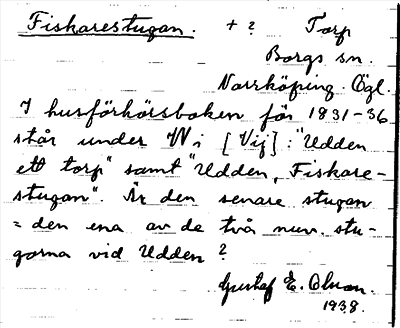 Fiskarestugan. + ? Torp
Borgs sn.
Norrköping. Ögl.
I husförhörsboken för 1831-36
står under Wi [Vij]: "Udden
ett torp" samt "Udden, Fiskare-
stugan". Är den senare stugan
= den ena av de två nuv. stu-
gorna vid Udden ?
Gustaf E. Olsson.
1938.